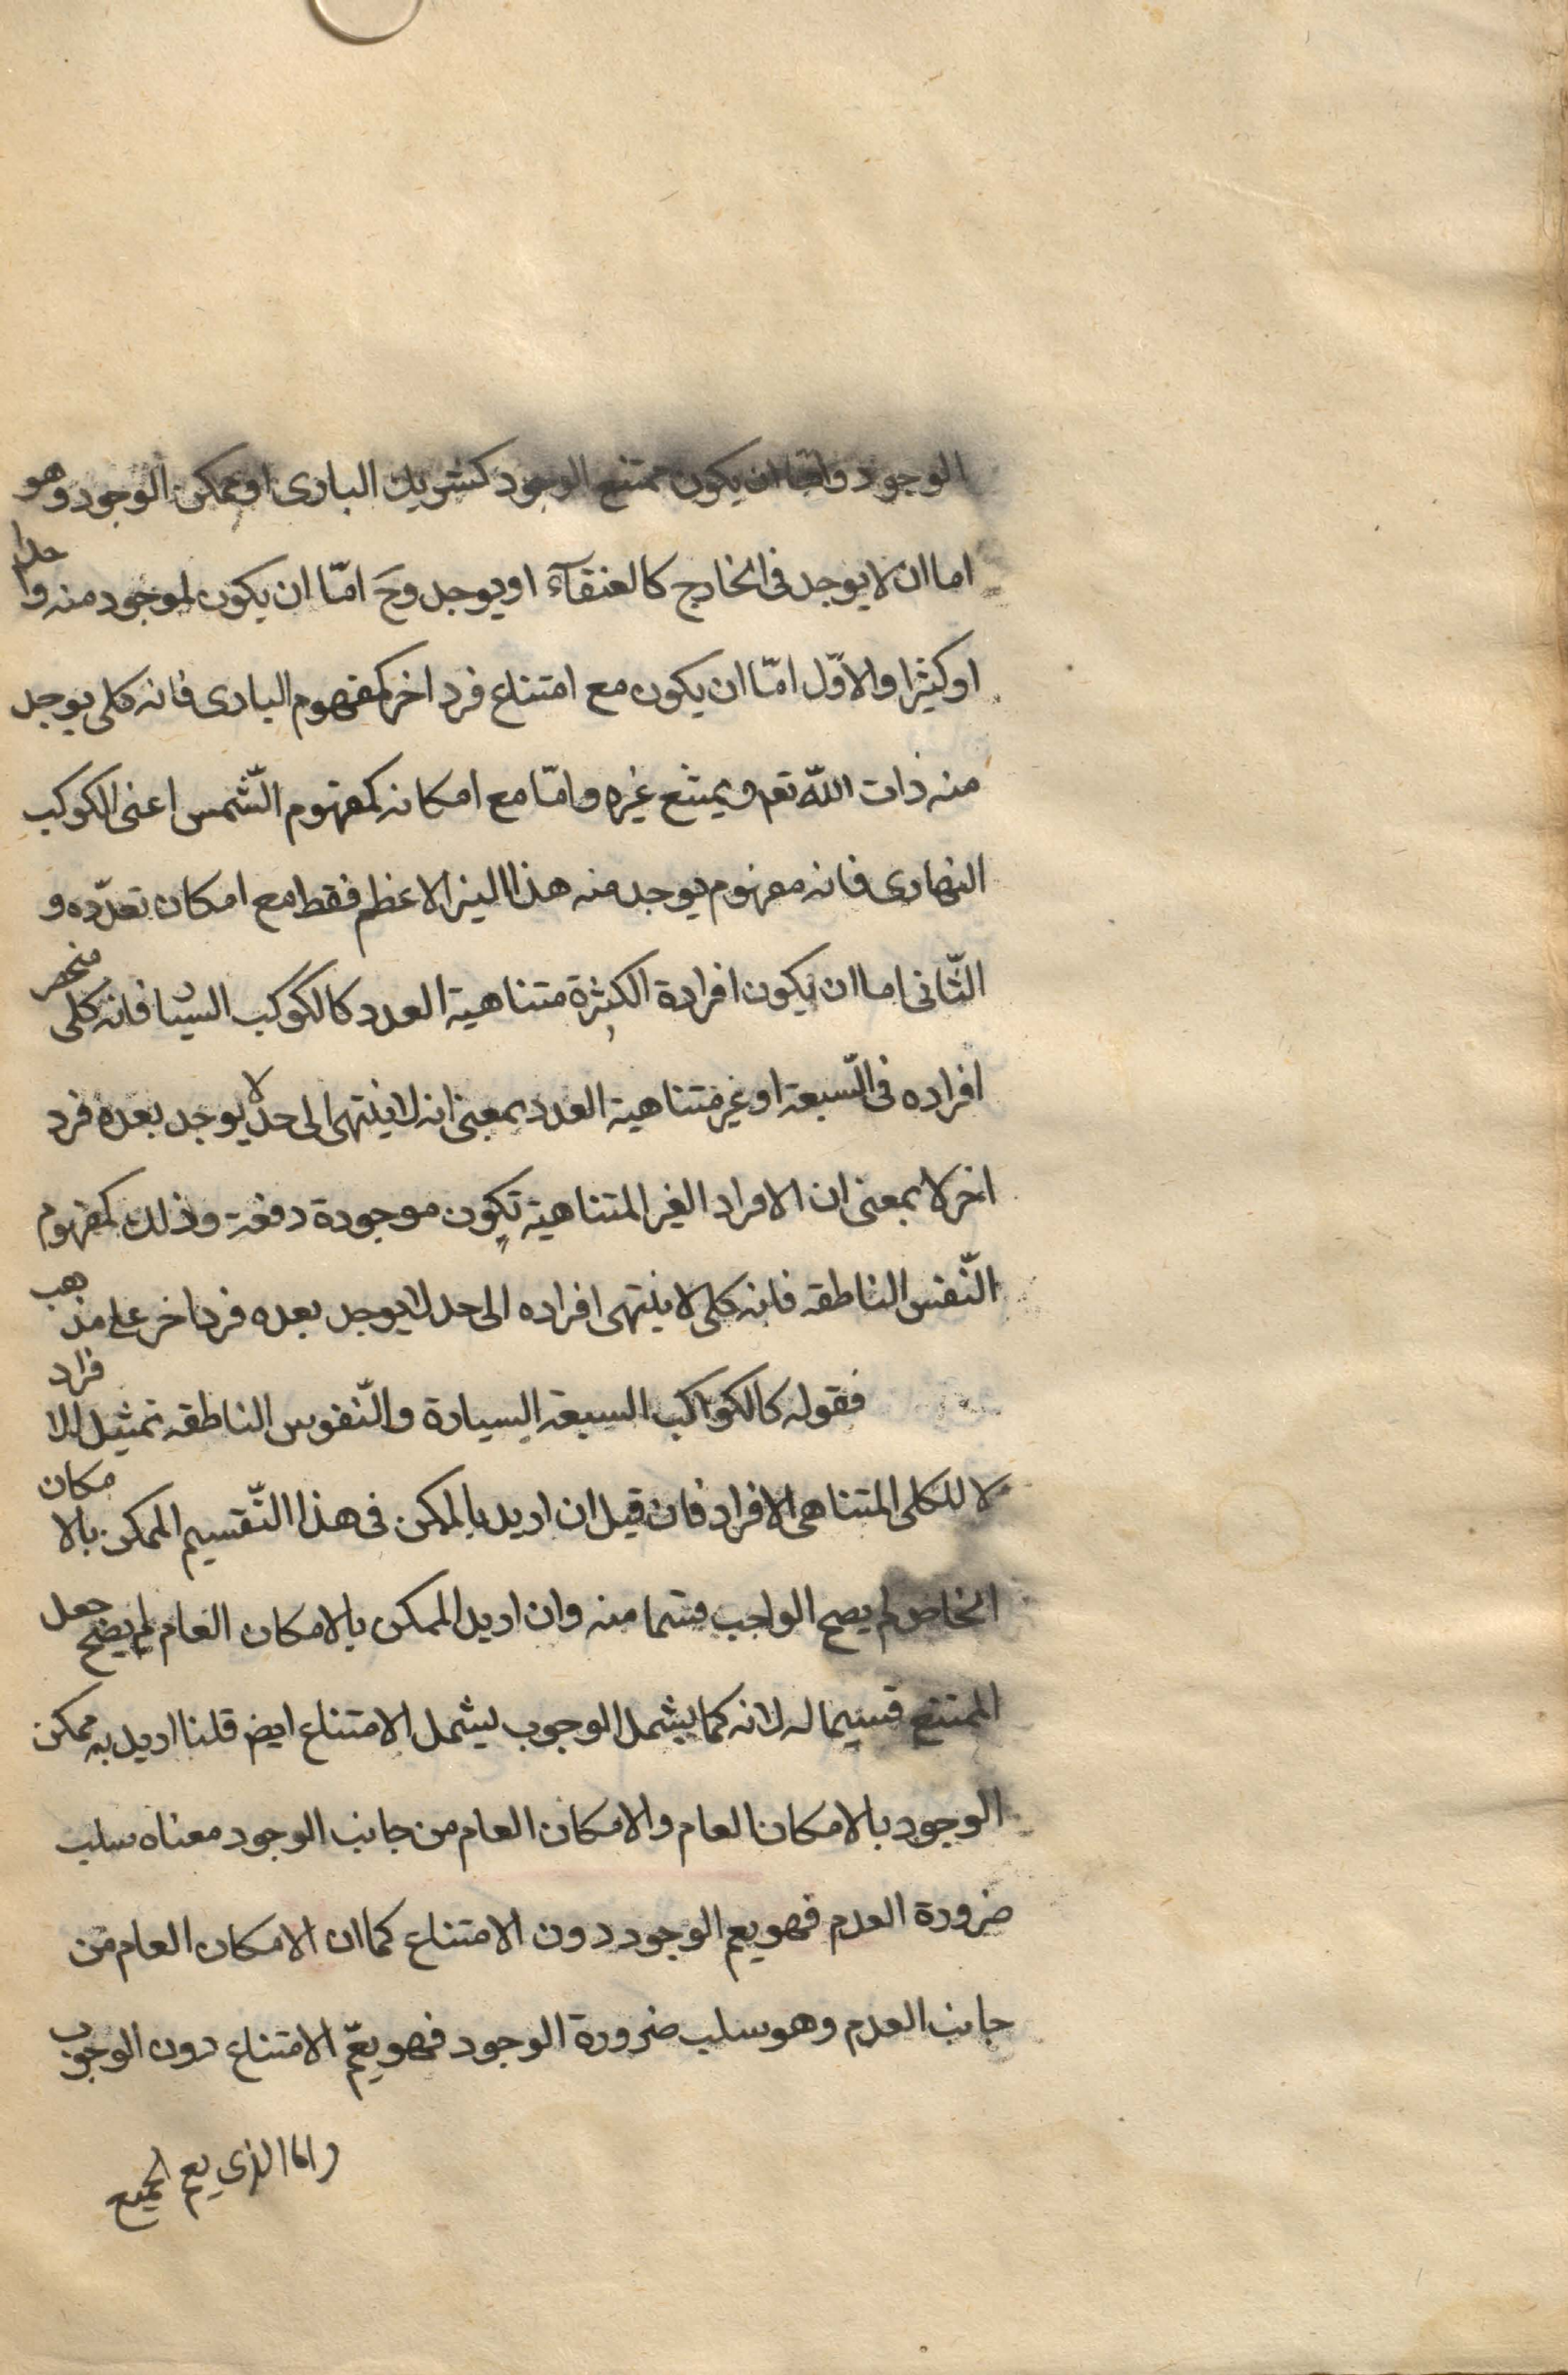 الوجود واما ان يكون ممتنع الوجود كشريك البارى او ممكن الوجود وهو
اما ان لا يوجد فى الخارج كالعنقآء او يوجد وحَ امّا ان يكون الموجود منه واحدا
او كثيرا والاوّل امّا ان يكون مع امتناع فرد اخر كمفهوم البارى فانه كلى يوجد
منه ذات اللّه تعم ويمتنع غيره وامّا مع امكانه كمفهوم الشّمس اعنى الكوكب
النهارى فانه مفهوم يوجد منه هذا النير الاعظم فقط مع امكان تعدّده و
الثّانى اما ان يكون افرادة الكثيرة متناهية العدد كالكوكب السيار فانه كلى منحصر
افراده فى السّبعة او غير متناهية العدد بمعنى انه لا ينتهى الى حد لا يوجد بعده فرد
اخر لا بمعنى ان الافراد الغير المتناهية تكون موجودة دفعة وذلك كمفهوم
النّفس الناطقه فانه كلى لا ينتهى افراده الى حد لا يوجد بعده فرد اخر على مذهب
فقوله كالكواكب السبعة السيارة والنّفوس الناطقه تمثيل للافراد
لا للكلى المتناهى الافراد فان قيل ان اريد بالممكن فى هذا التّقسيم الممكن بالامكان
الخاص لم يصح الواجب قسما منه وان اريد الممكن بالامكان العام لم يصح جعل
الممتنع قسيما له لانه كما يشمل الوجوب يشمل الامتناع ايض قلنا اريد به ممكن
الوجود بالامكان العام والامكان العام من جانب الوجود معناه سلب
ضرورة العدم فهو يعم الوجود دون الامتناع كما ان الامكان العام من
جانب العدم وهو سلب ضرورة الوجود فهو يعمّ الامتناع دون الوجوب
واما الذى يعم الجميع